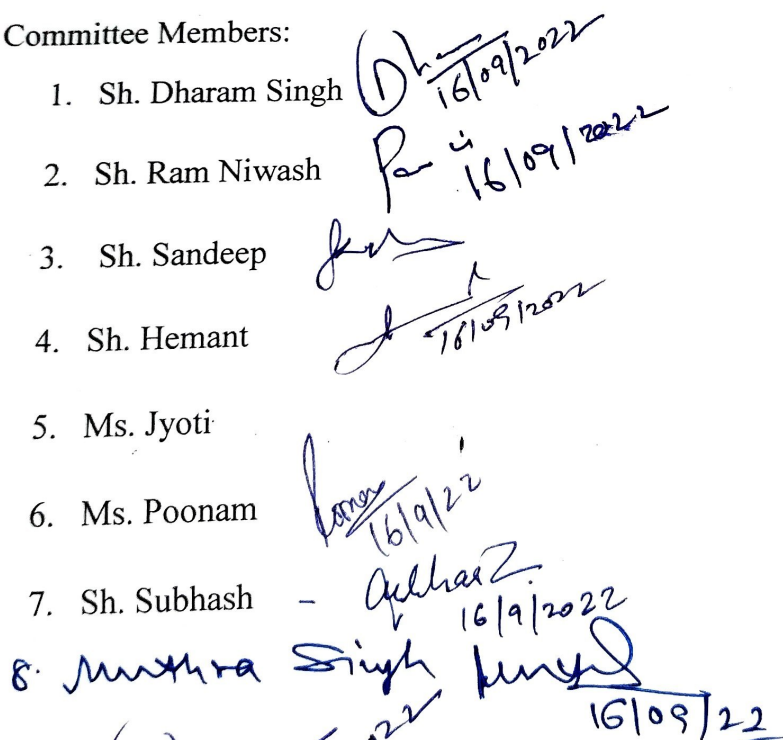 Committee Members:
1. Sh. Dharam Singh 16/09/2022
2. Sh. Ram Niwash 16/09/2022
3. Sh. Sandeep
4. Sh. Hemant 16/09/2022
5. Ms. Jyoti
6. Ms. Poonam 16/9/22
7. Sh. Subhash - 16/9/2022
8. Muthra Singh 16/09/22